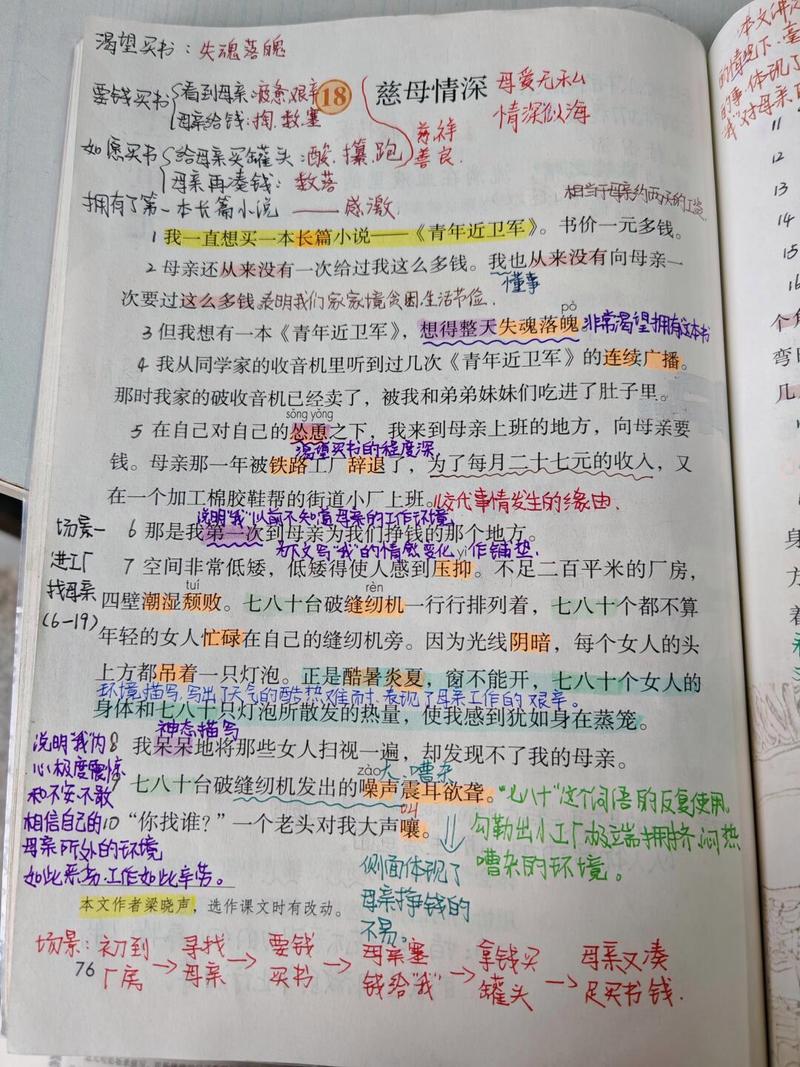 渴望买书：失魂落魄
要钱买书 看到母亲：疲惫艰辛
母亲给钱：掏、数、塞
18 慈母情深
母爱无私
情深似海
慈祥
善良.
如愿买书 给母亲买罐头：酸、攥、跑
母亲再凑钱：数落
拥有了第一本长篇小说——感激.
相当于母亲约两天的工资
1 我一直想买一本长篇小说——《青年近卫军》。书价一元多钱。
2 母亲还从来没有一次给过我这么多钱。我也从来没有向母亲一
懂事
次要过这么多钱。表明我们家家境贫困生活节俭.
pò
3 但我想有一本《青年近卫军》，想得整天失魂落魄。非常渴望拥有这本书
4 我从同学家的收音机里听到过几次《青年近卫军》的连续广播。
那时我家的破收音机已经卖了，被我和弟弟妹妹们吃进了肚子里。
sǒng yǒng
5 在自己对自己的怂恿之下，我来到母亲上班的地方，向母亲要
渴望买书的程度深.
钱。母亲那一年被铁路工厂辞退了，为了每月二十七元的收入，又
在一个加工棉胶鞋帮的街道小厂上班。交代事情发生的缘由.
说明“我”以前不知道母亲的工作环境
场景一
进工厂
找母亲
(6-19)
6 那是我第一次到母亲为我们挣钱的那个地方。
为下文写“我”的情感变化作铺垫.
yì
7 空间非常低矮，低矮得使人感到压抑。不足二百平米的厂房，
tuí
rèn
四壁潮湿颓败。七八十台破缝纫机一行行排列着，七八十个都不算
年轻的女人忙碌在自己的缝纫机旁。因为光线阴暗，每个女人的头
上方都吊着一只灯泡。正是酷暑炎夏，窗不能开，七八十个女人的
环境描写，写出了天气的酷热难耐，表现了母亲工作的艰辛。
身体和七八十只灯泡所散发的热量，使我感到犹如身在蒸笼。
神态描写
8 我呆呆地将那些女人扫视一遍，却发现不了我的母亲。
zào
大、嘈杂
9 七八十台破缝纫机发出的噪声震耳欲聋。
叫
10 “你找谁？”一个老头对我大声嚷。
说明“我”内
心极度震惊
和不安，不敢
相信自己的
母亲所处的环境
如此恶劣，工作如此辛劳。
“七八十”这个词语的反复使用，
勾勒出小工厂极端拥挤、闷热
嘈杂的环境。
侧面体现了
母亲挣钱的
不易。
本文作者梁晓声，选作课文时有改动。
场景：初到厂房→寻找母亲→要钱买书→母亲塞钱给“我”→拿钱买罐头→母亲又凑足买书钱.
76
11
12
13
14
15
16